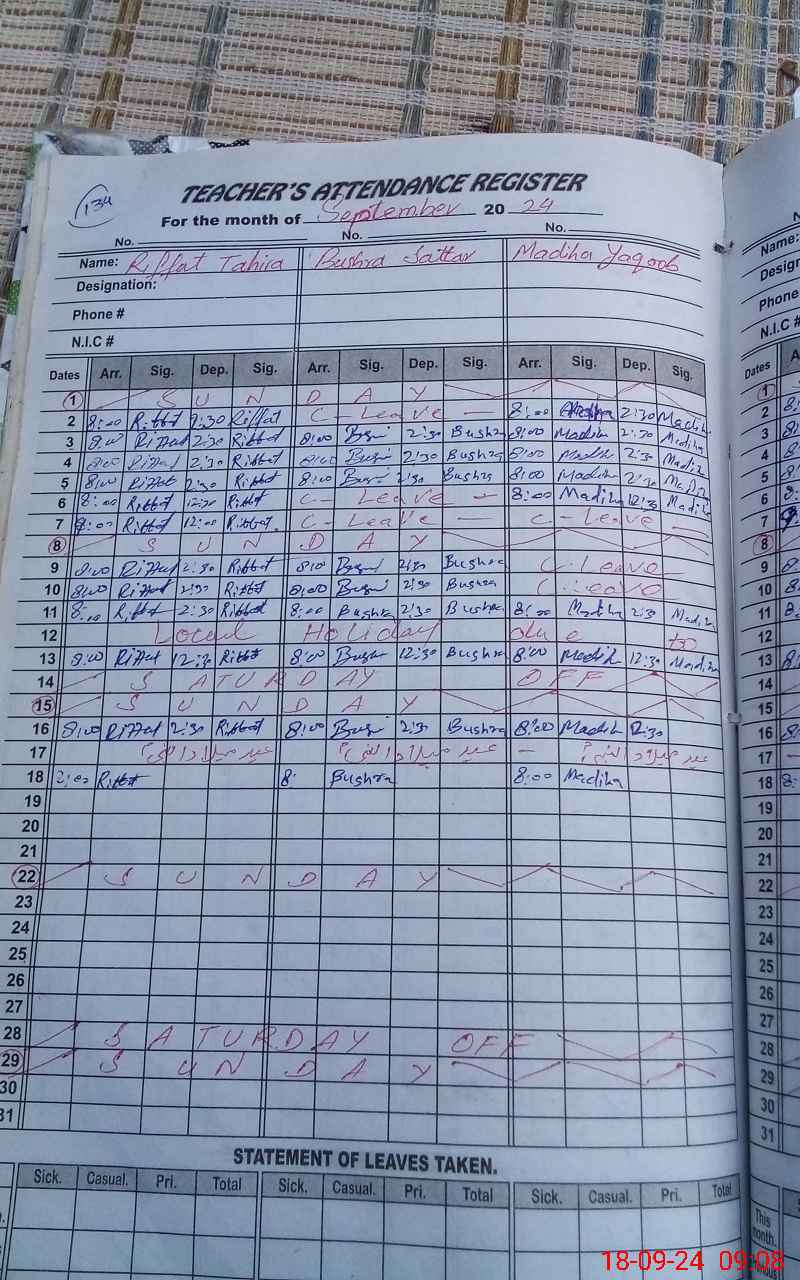 134
TEACHER'S ATTENDANCE REGISTER
For the month of September 2024
No. No. No.
Name: Riffat Tahira Bushra Sattar Madiha Yaqoob
Designation:
Phone #
N.I.C #
Dates Arr. Sig. Dep. Sig. Arr. Sig. Dep. Sig. Arr. Sig. Dep. Sig.
1 S U N D A Y
2 8:00 Riffat 2:30 Riffat C-Leave 8:00 Madiha 2:30 Madiha
3 8:00 Riffat 2:30 Riffat 8:00 Bushra 2:30 Bushra 8:00 Madiha 2:30 Madiha
4 8:00 Riffat 2:30 Riffat 8:00 Bushra 2:30 Bushra 8:00 Madiha 2:30 Madiha
5 8:00 Riffat 2:30 Riffat 8:00 Bushra 2:30 Bushra 8:00 Madiha 2:30 Madiha
6 8:00 Riffat 12:30 Riffat C-Leave 8:00 Madiha 12:30 Madiha
7 8:00 Riffat 12:00 Riffat C-Leave C-Leave
8 S U N D A Y
9 8:00 Riffat 2:30 Riffat 8:00 Bushra 2:30 Bushra C-Leave
10 8:00 Riffat 2:30 Riffat 8:00 Bushra 2:30 Bushra C-Leave
11 8:00 Riffat 2:30 Riffat 8:00 Bushra 2:30 Bushra 8:00 Madiha 2:30 Madiha
12 Local Holiday due to
13 8:00 Riffat 12:30 Riffat 8:00 Bushra 12:30 Bushra 8:00 Madiha 12:30 Madiha
14 S A T U R D A Y O F F
15 S U N D A Y
16 8:00 Riffat 2:30 Riffat 8:00 Bushra 2:30 Bushra 8:00 Madiha 12:30
17 عید میلاد النبیؐ عید میلاد النبیؐ - عید میلاد النبیؐ
18 Riffat 8: Bushra 8:00 Madiha
19
20
21
22 S U N D A Y
23
24
25
26
27
28 S A T U R D A Y O F F
29 S U N D A Y
30
31
STATEMENT OF LEAVES TAKEN.
Sick. Casual. Pri. Total Sick. Casual. Pri. Total Sick. Casual. Pri. Total
Name:
Phone #
N.I.C #
Dates
1
2
3
4
5
6
7
8
9
10
11
12
13
14
15
16
17
18
19
20
21
22
23
24
25
26
27
28
29
30
31
This
month.
18-09-24 09:08